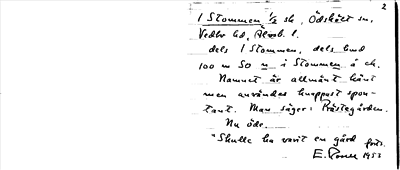 2
1 Stommen 1/2 sk, Ödskölt sn,
Vedbo hd, Älvsb. l.
dels 1 Stommen, dels bmd
100 m SO m i Stommen å ek.
Namnet är allmänt känt
men användes knappast spon-
tant. Man säger: Prästegården.
Nu öde.
"Skulle ha varit en gård förr.
E. 1953